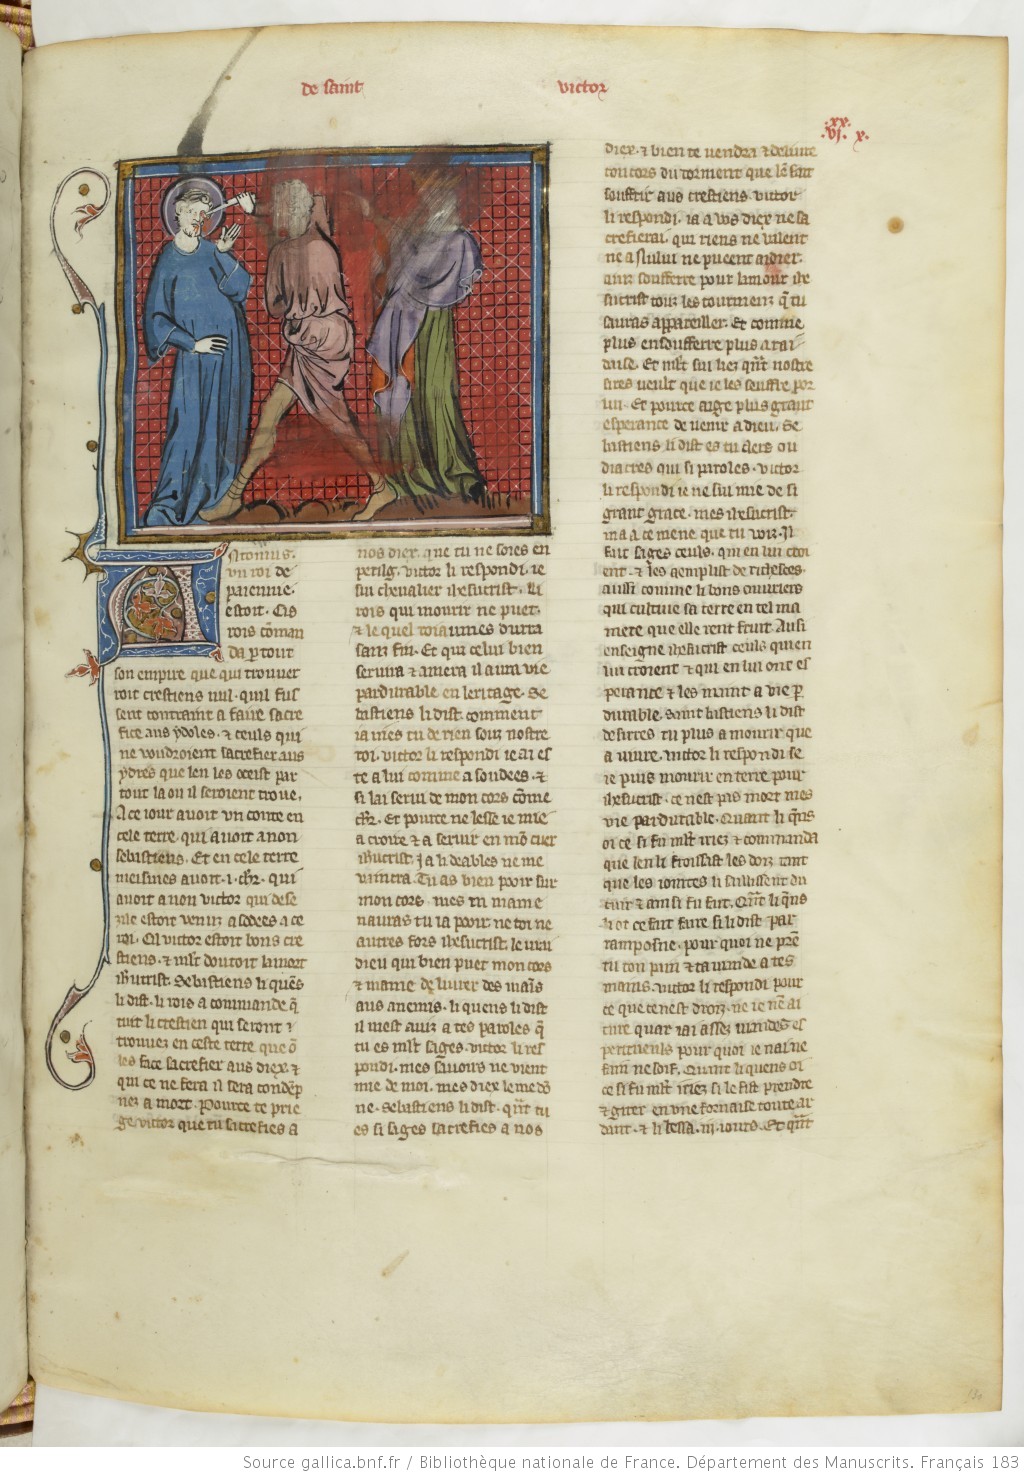 de saint victor
.xx.
.vi. x.
Ntonius.
vn roi de
paiennie.
estoit. Cis
rois cōman
da ꝑ tout
son empire que qui trouuer
roit crestiens nul. quil fus
sent contraint a faire sacre
fice aus ydoles. ⁊ ceuls qui
ne voudroient sacrefier aus
ydres que len les oceist par
tout la ou il seroient troue.
A ce iour auoit vn conte en
cele terre. qui auoit a non
sebastiens. Et en cele terre
meismes auoit .i. chr̄. qui
auoit a non victor qui de se
zile estoit venuz a sodees a ce
roi. Cil victor estoit bons cre
stiens. ⁊ ml̄t doutoit la mort
ih̄ucrist. Sebastiens li quēs
li dist. li rois a commande q̄
tuit li crestien qui seront
trouuez en ceste terre que ō
les face sacrefier aus diex. ⁊
qui ce ne fera il sera condēp
nez a mort. Pource te prie
ge victor que tu sacrefies a
nos diex. que tu ne soies en
perilg. victor li respondi. ie
sui cheualier ih̄esucrist. li
rois qui mourir ne puet.
⁊ le quel roiaumes durra
sanz fin. Et qui celui bien
seruira ⁊ amera il aura vie
pardurable en leritage. Se
bastiens li dist. comment
ia mes tu de rien souz nostre
roi. victor li respondi ie ai es
te a lui comme a soudees. ⁊
si lai serui de mon cors cōme
chr̄. Et pource ne lesse ie mie
a croire ⁊ a seruir en mō cuer
ih̄ucrist. Ja li deables ne me
vaintra. Tu as bien pooir sur
mon cors. mes en mame
nauras tu ia pooir. ne toi ne
autres fors ih̄esucrist. le vrai
dieu qui bien puet mon cors
⁊ mame deliurer des mais
aus anemis. li quens li dist
il mest auiz a tes paroles q̄
tu es ml̄t sages. victor li res
pondi. mes sauoirs ne vient
mie de moi. mes diex le me dō
ne. Sebastiens li dist. quāt tu
es si sages sacrefies a nos
diex. ⁊ bien te vendra ⁊ deliure
ton cors du torment que lē fait
souffrir aus crestiens. victor
li respondi. ia a vos diex ne sa
crefierai. qui riens ne valent
ne a si lui ne pueent aidier.
ainz soufferre pour lamour ih̄e
sucrist touz les tourmenz q̄ tu
sauras appareiller. Et comme
plus en soufferre plus aurai
daise. Et ml̄t sui liez quāt nostre
sires veult que ie les seuffre por
lui. Et pource ai ge plus grant
esperance de venir a dieu. Se
bastiens li dist es tu clers ou
diacres qui si paroles. victor
li respondi ie ne sui mie de si
grant grace. mes ih̄esucrist
ma a ce mene que tu voiz. Il
fait sages ceuls. qui en lui croi
ent. ⁊ les raemplist de richesces.
aussi comme li bons ouuriers
qui cultiue sa terre en tel ma
niere que elle rent fruit. Ausi
enseigne ih̄esucrist ceuls qui en
lui croient ⁊ qui en lui ont es
perance ⁊ les maint a vie ꝑ
durable. Saint bastiens li dist
desirres tu plus a mourir que
a viure. victor li respondi se
ie puis mourir en terre pour
ih̄esucrist. ce nest pas mort mes
vie pardurable. Quant li quēs
oi ce si fu ml̄t iriez ⁊ commanda
que len li froissast les doiz tant
que les iointes li saillissent du
cuir ⁊ ainsi fu fait. Quāt li quēs
li ot ce fait faire si li dist par
ramposne. pour quoi ne prē
tu ton pain ⁊ ta viande a tes
mains. victor li respondi pour
ce que ce nest droiz. ne ie nē ai
cure quar iai assez viandes es
perituenls pour quoi ie nai ne
faim ne soif. Quant li quens oi
ce si fu ml̄t iriez si le fist prendre
⁊ giter en vne fornaise toute ar
dant. ⁊ li lessa .iii. iours. Et quāt
Source gallica.bnf.fr / Bibliothèque nationale de France. Département des Manuscrits. Français 183